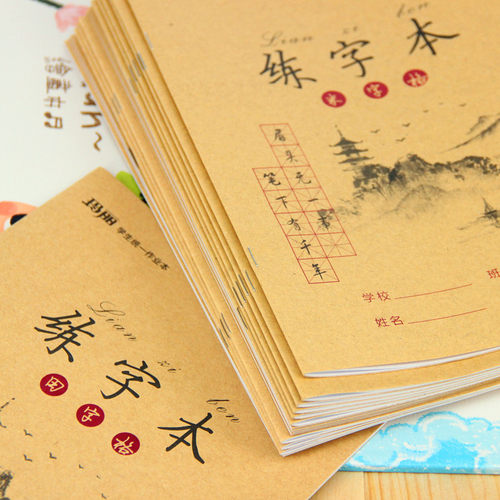 Lian zi ben
练字本
米字格
眉头元一
笔下有千年
学校
班
姓名
玛丽
学生统一作业本
Lian zi ben
练字本
田字格